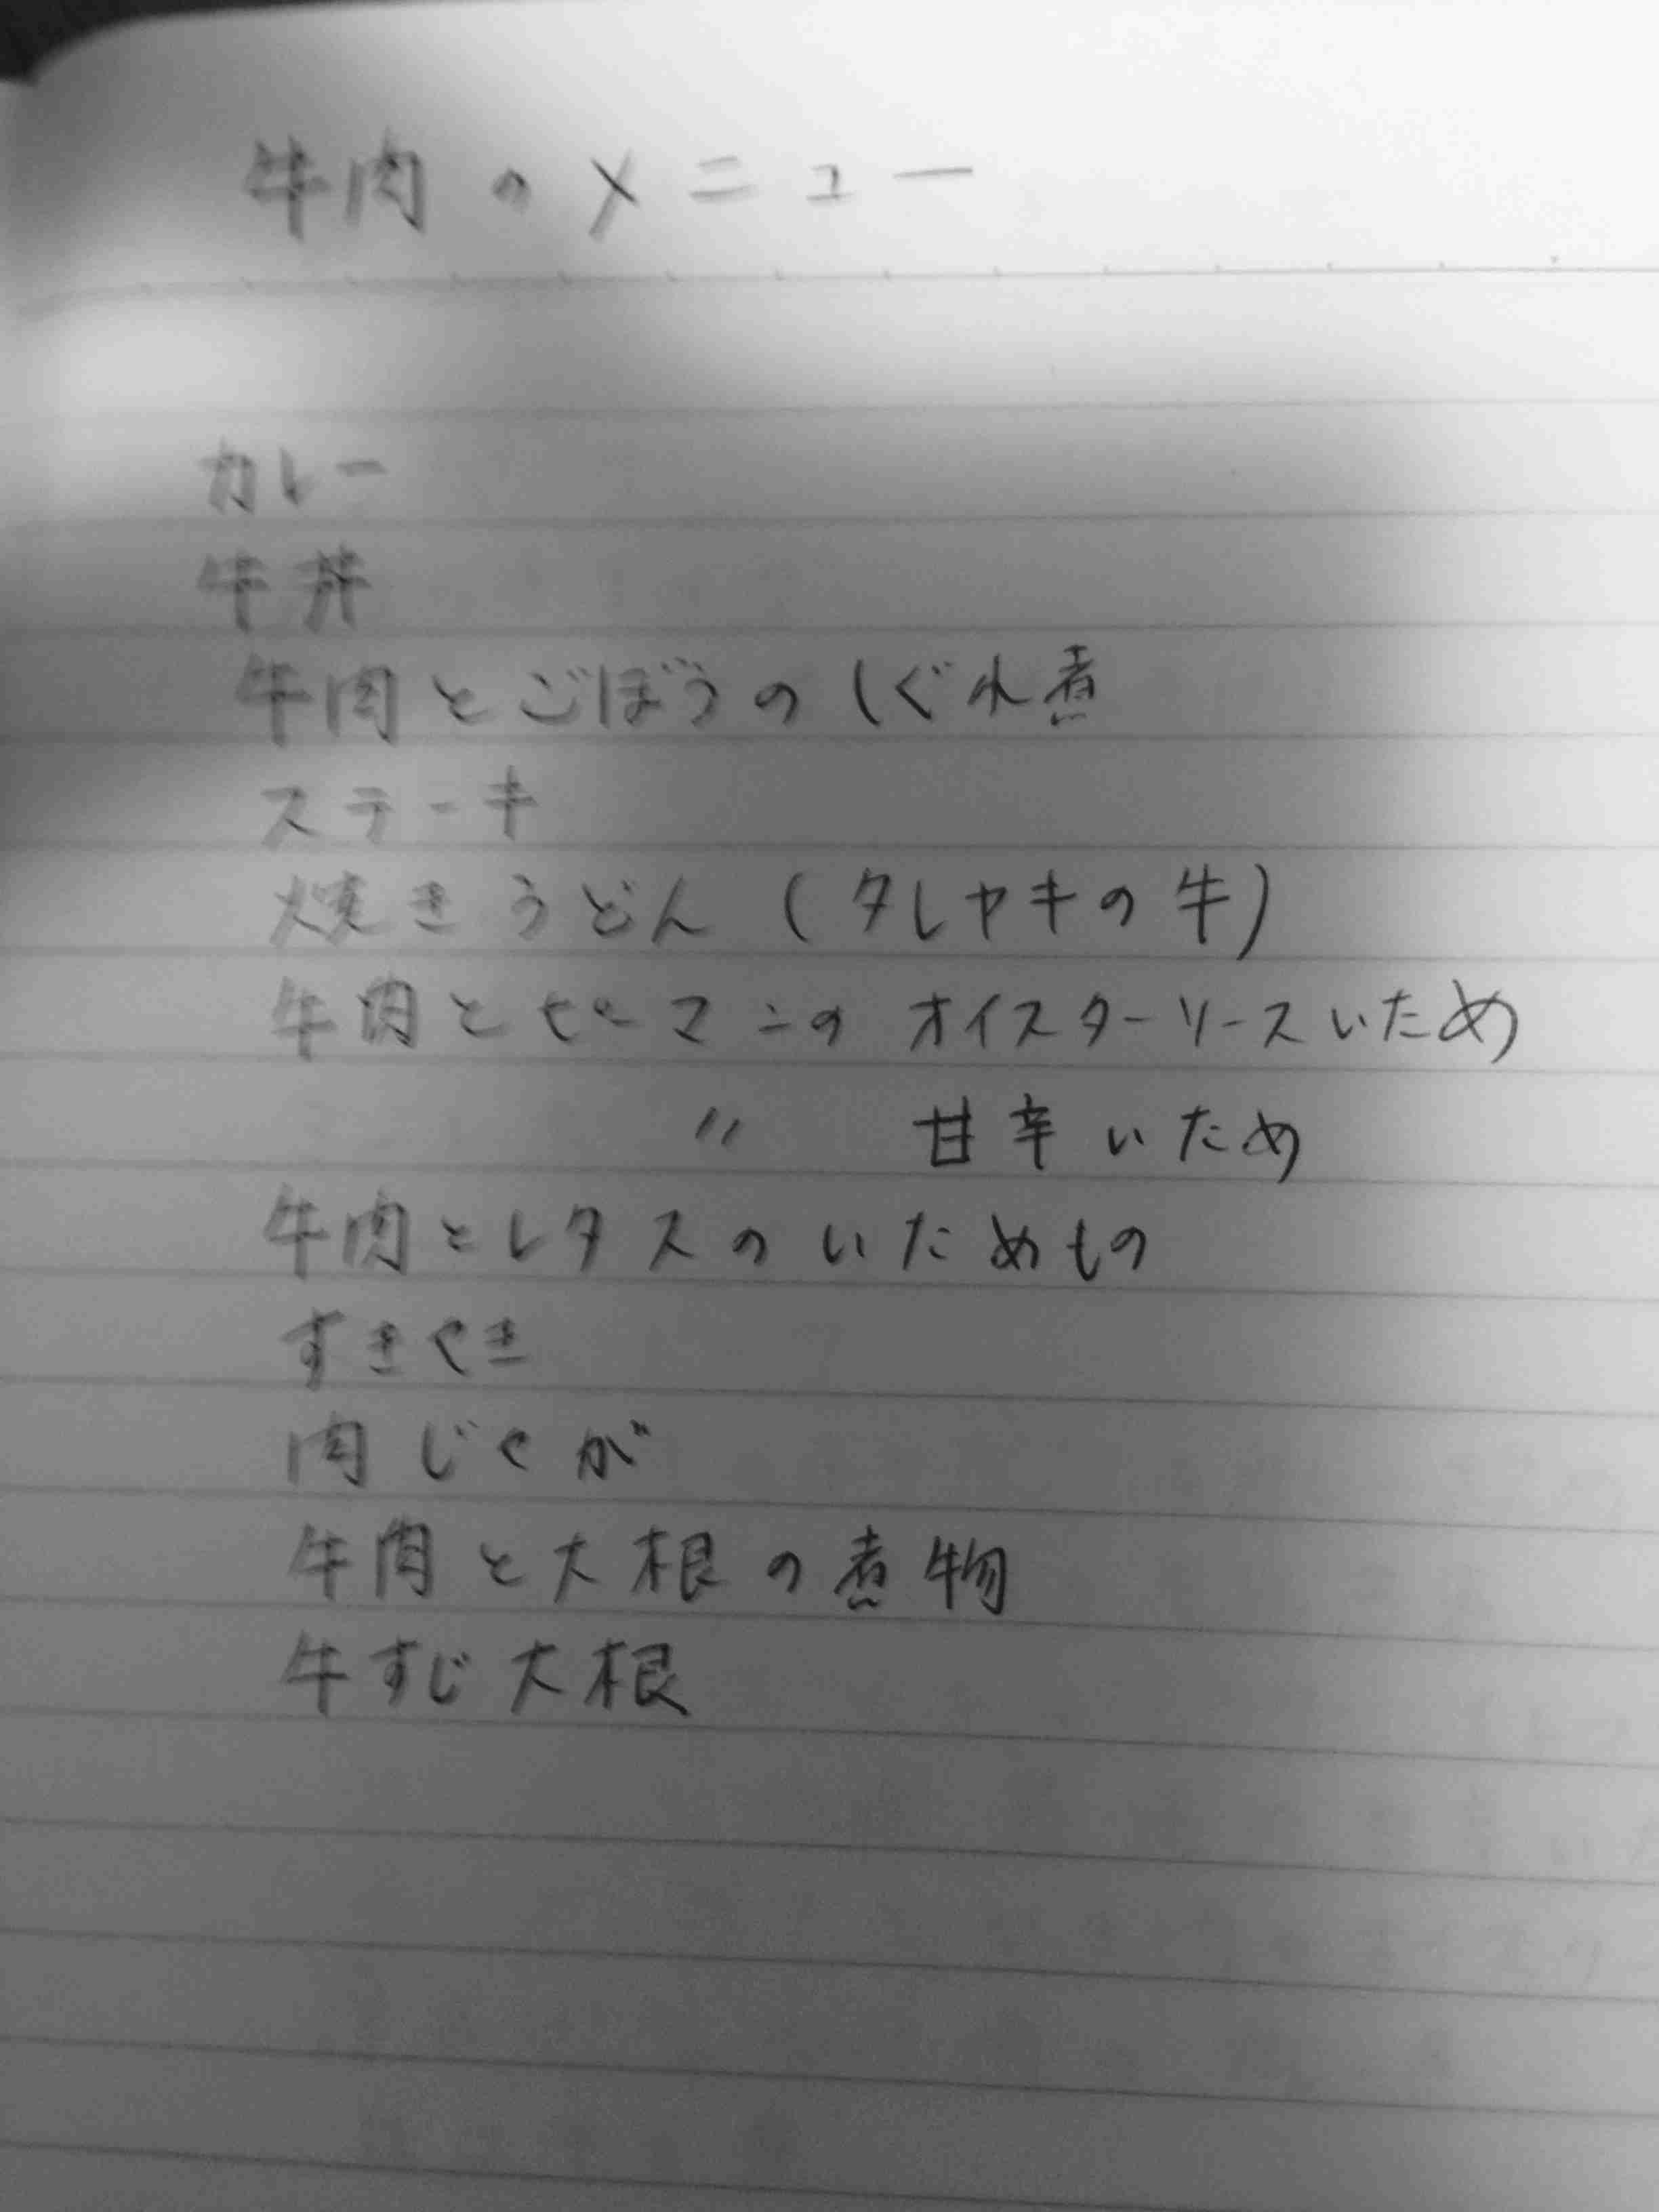 牛肉のメニュー
カレー
牛丼
牛肉とごぼうのしぐれ煮
ステーキ
焼きうどん(タレヤキの牛)
牛肉とピーマンのオイスターソースいため
〃 甘辛いため
牛肉とレタスのいためもの
すきやき
肉じゃが
牛肉と大根の煮物
牛すじ大根